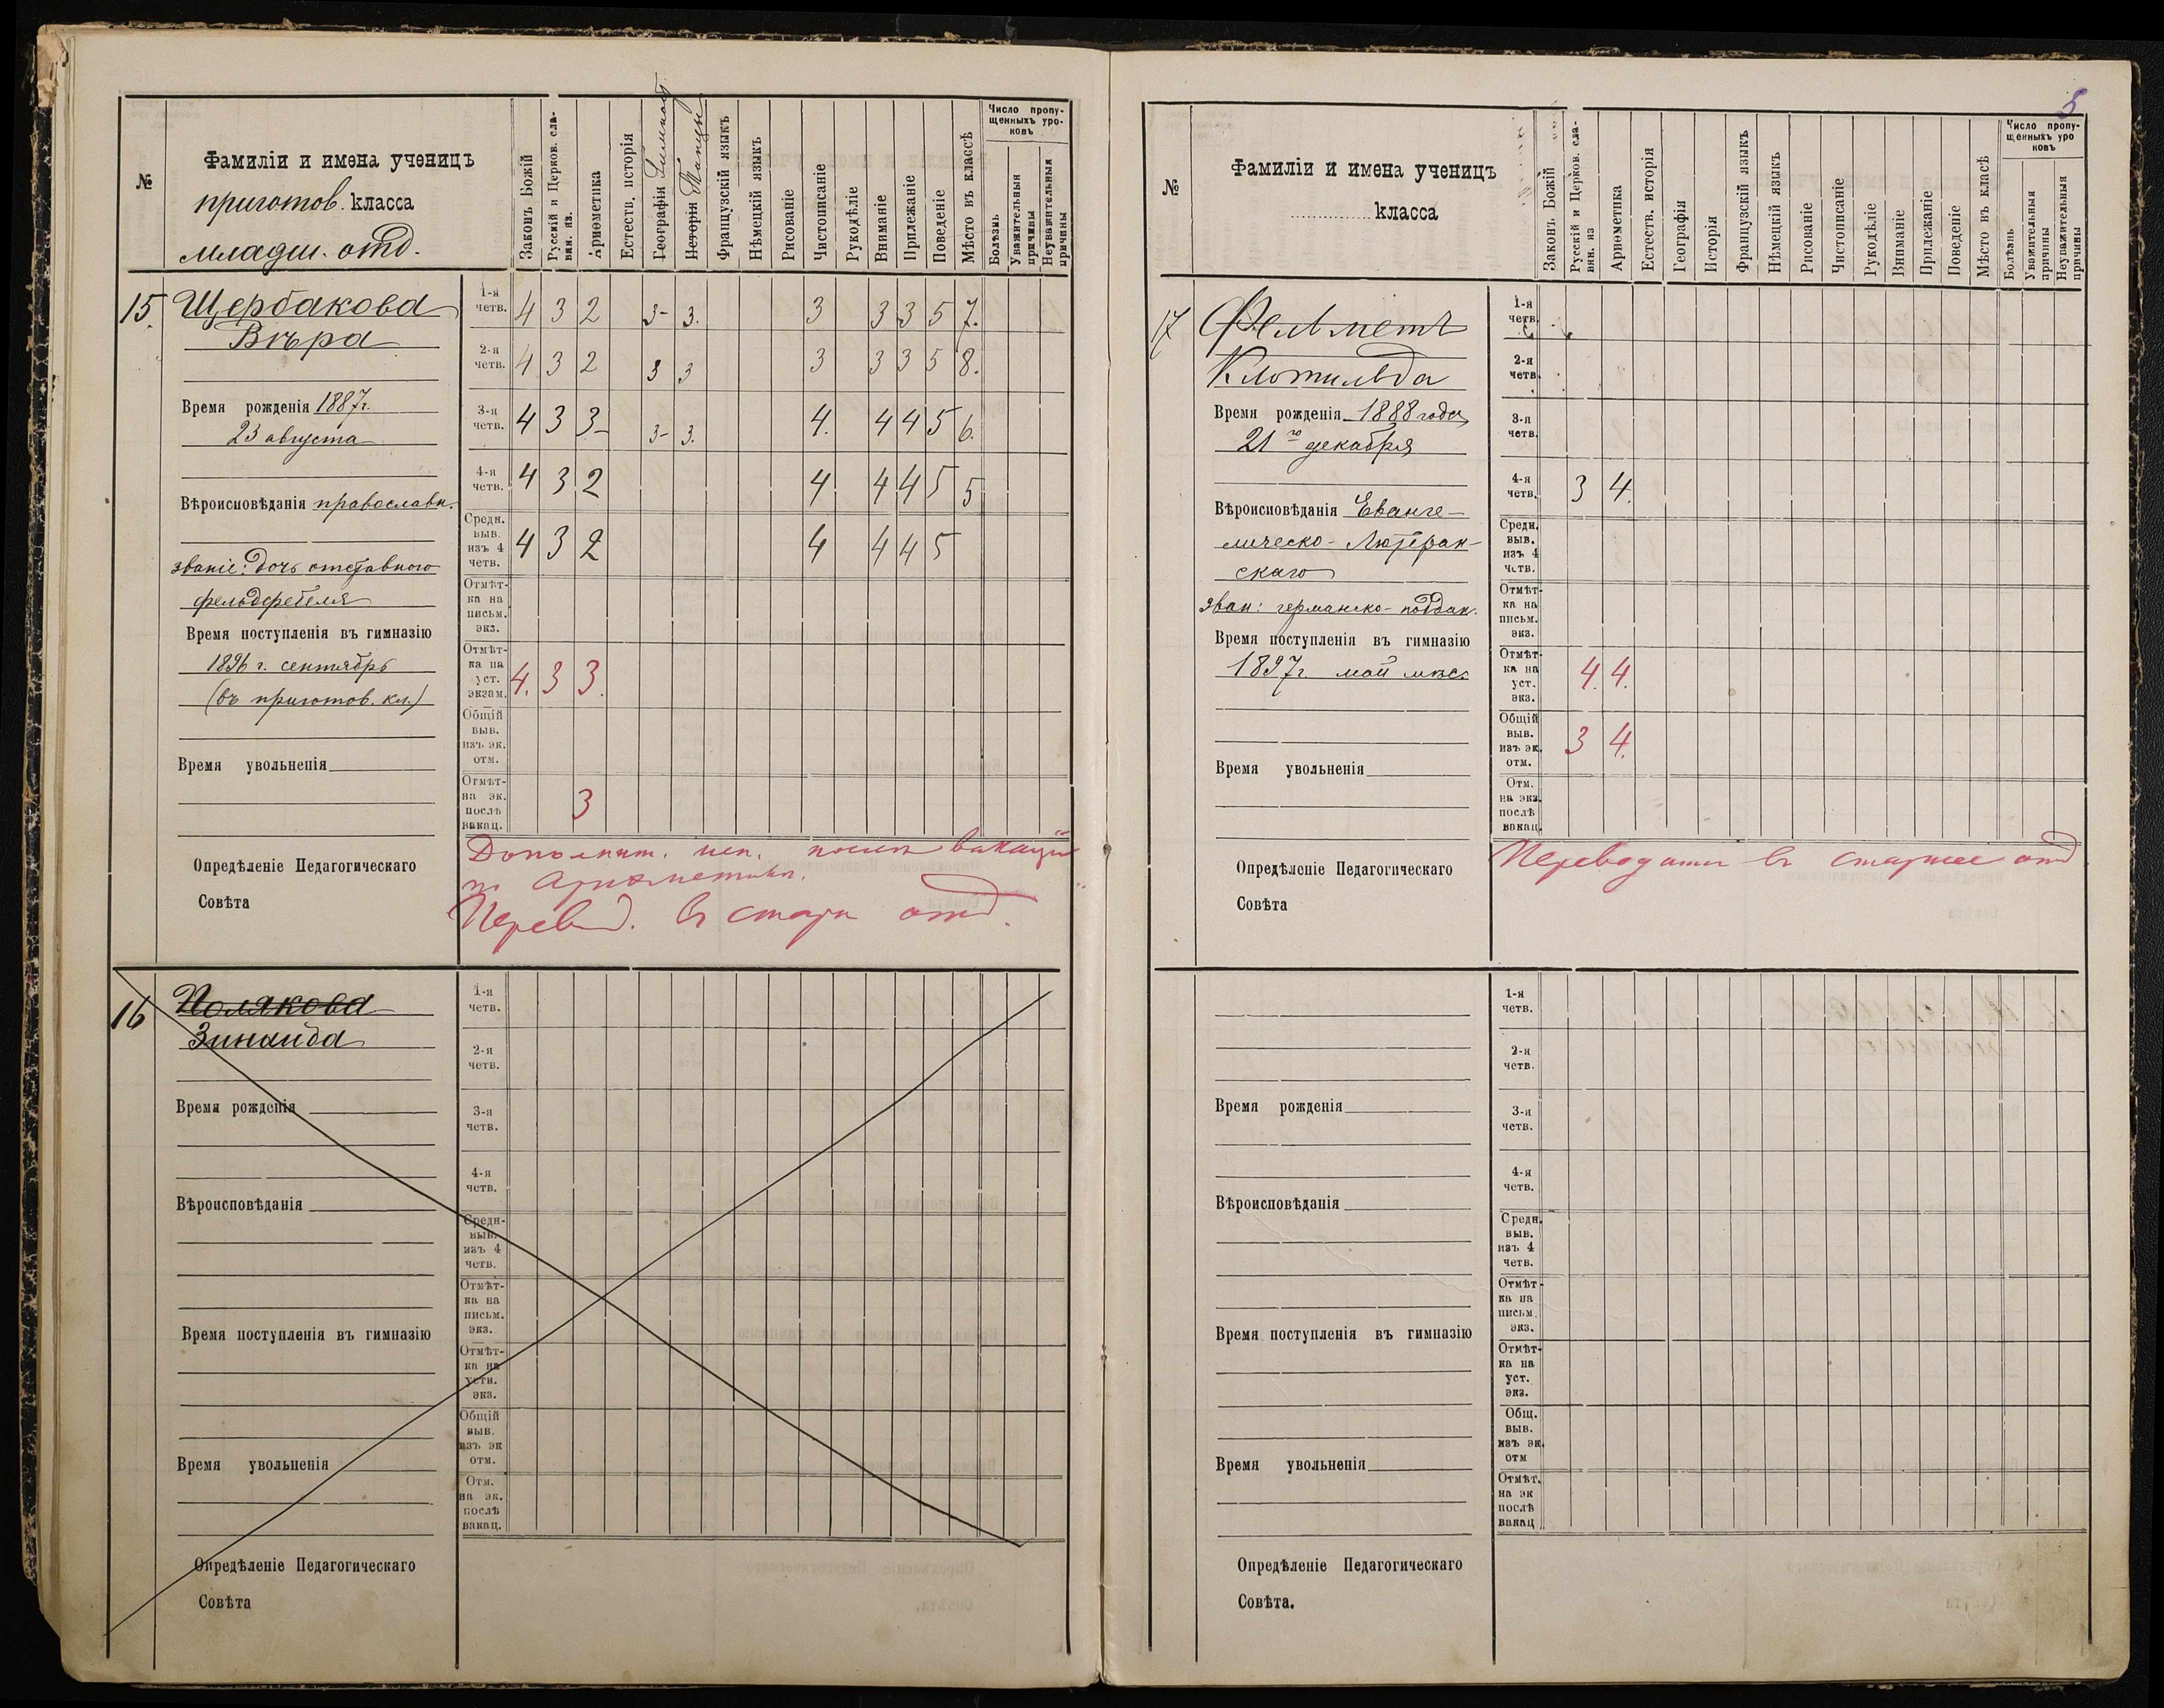 №
Фамиліи и имена ученицъ
приготов. класса
младш. отд.
Законъ Божій
Русскій и Церков. сла-
вян. яз.
Ариѳметика
Естеств. исторія
Географія
Исторія Танцы
Французскій языкъ
Нѣмецкій языкъ
Рисованіе
Чистописаніе
Рукодѣліе
Вниманіе
Прилежаніе
Поведеніе
Мѣсто въ классѣ
Число пропу-
щенныхъ уро-
ковъ
Болѣзнь
Уважительныя
причины
Неуважительныя
причины
15. Щербакова
Вѣра
Время рожденія 1887 г.
23 августа
Вѣроисповѣданія православн.
званіе: дочь отставного
фельдфебеля
Время поступленія въ гимназію
1896 г. сентябрь
(въ приготов. кл.)
Время увольненія
1-я
четв. 4 3 2 3- 3. 3 3 3 5 7.
2-я
четв. 4 3 2 3 3 3 3 3 5 8.
3-я
четв. 4 3 3- 3- 3. 4. 4 4 5 6.
4-я
четв. 4 3 2 4 4 4 5 5
Средн.
выв.
изъ 4
четв. 4 3 2 4 4 4 5
Отмѣт-
ка на
письм.
экз.
Отмѣт-
ка на
уст.
экзам. 4. 3 3.
Общій
выв.
изъ эк.
отм.
Отмѣт-
на эк.
послѣ
вакац. 3
Опредѣленіе Педагогическаго
Совѣта
Дополнит. исп. послѣ вакацій
по Ариѳметикѣ.
Перевод. въ старш отд.
16 Полякова
Зинаида
Время рожденія
Вѣроисповѣданія
Время поступленія въ гимназію
Время увольненія
1-я
четв.
2-я
четв.
3-я
четв.
4-я
четв.
Средн-
выв.
изъ 4
четв.
Отмѣт-
ка на
письм.
экз.
Отмѣт-
ка на
устн.
экз.
Общій
выв.
изъ эк
отм.
Отм.
на эк.
послѣ
вакац.
Опредѣленіе Педагогическаго
Совѣта
5
№
Фамиліи и имена ученицъ
класса
Законъ Божій
Русскій и Церков. сла-
вян. яз
Ариѳметика
Естеств. исторія
Географія
Исторія
Французскій языкъ
Нѣмецкій языкъ
Рисованіе
Чистописаніе
Рукодѣліе
Вниманіе
Прилежаніе
Поведеніе
Мѣсто въ класѣ
Число пропу-
щенныхъ уро
ковъ
Болѣзнь
Уважительныя
причины
Неуважительныя
причины
17
Клотильда
Время рожденія 1888 года
21го декабря
Вѣроисповѣданія Еванге-
лическо-Лютеран-
скаго
зван: германско-поддан.
Время поступленія въ гимназію
1897 г. май мѣс
Время увольненія
1-я
четв.
2-я
четв.
3-я
четв.
4-я
четв. 3 4.
Средн.
выв.
изъ 4
четв.
Отмѣт-
ка на
письм.
экз.
Отмѣт-
ка на
уст.
экз. 4. 4.
Общій
выв.
изъ эк.
отм. 3 4.
Отм.
на экз.
послѣ
вакац.
Опредѣленіе Педагогическаго
Совѣта
въ старшее отд
Время рожденія
Вѣроисповѣданія
Время поступленія въ гимназію
Время увольненія
1-я
четв.
2-я
четв.
3-я
четв.
4-я
четв.
Средн.
выв.
изъ 4
четв.
Отмѣт-
ка на
письм.
экз.
Отмѣт-
ка на
уст.
экз.
Общ.
выв.
изъ эк.
отм
Отмѣт.
на эк
послѣ
вакац
Опредѣленіе Педагогическаго
Совѣта.